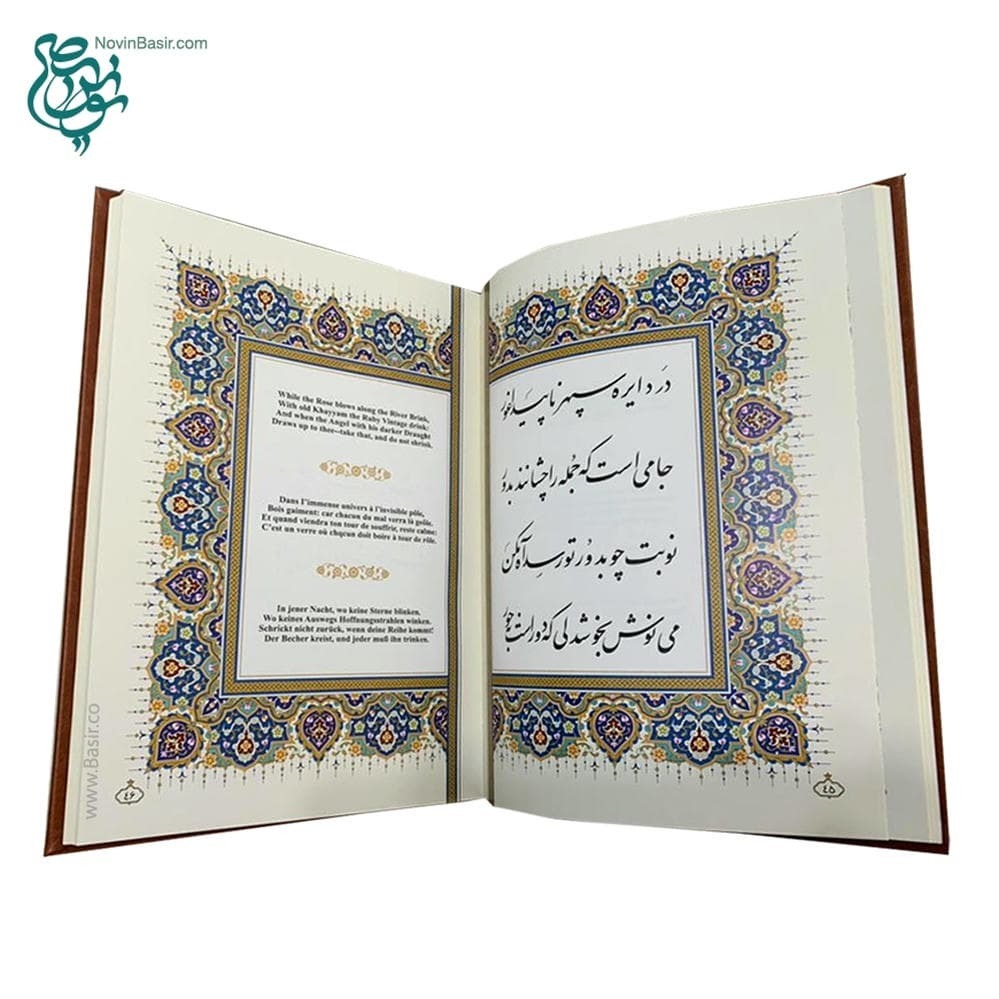 NovinBasir.com
در دایره سپهر ناپیدا غور
جامی است که جمله را چشانند بدور
نوبت چو بدور تو رسد آه مکن
می نوش بخوشدلی که دور است بجور
٤٥
While the Rose blows along the River Brink,
With old Khayyam the Ruby Vintage drink:
And when the Angel with his darker Draught
Draws up to thee--take that, and do not shrink.
Dans l'immense univers à l'invisible pôle,
Bois gaiment: car chacun du mal verra là goûle,
Et quand viendra ton tour de souffrir, reste calme:
C'est un verre où chqcun doit boire à tour de rôle.
In jener Nacht, wo keine Sterne blinken.
Wo keines Auswegs Hoffnungsstrahlen winken.
Schrickt nicht zurück, wenn deine Reihe kommt!
Der Becher kreist, und jeder muß ihn trinken.
٤۶
www.Basir.co